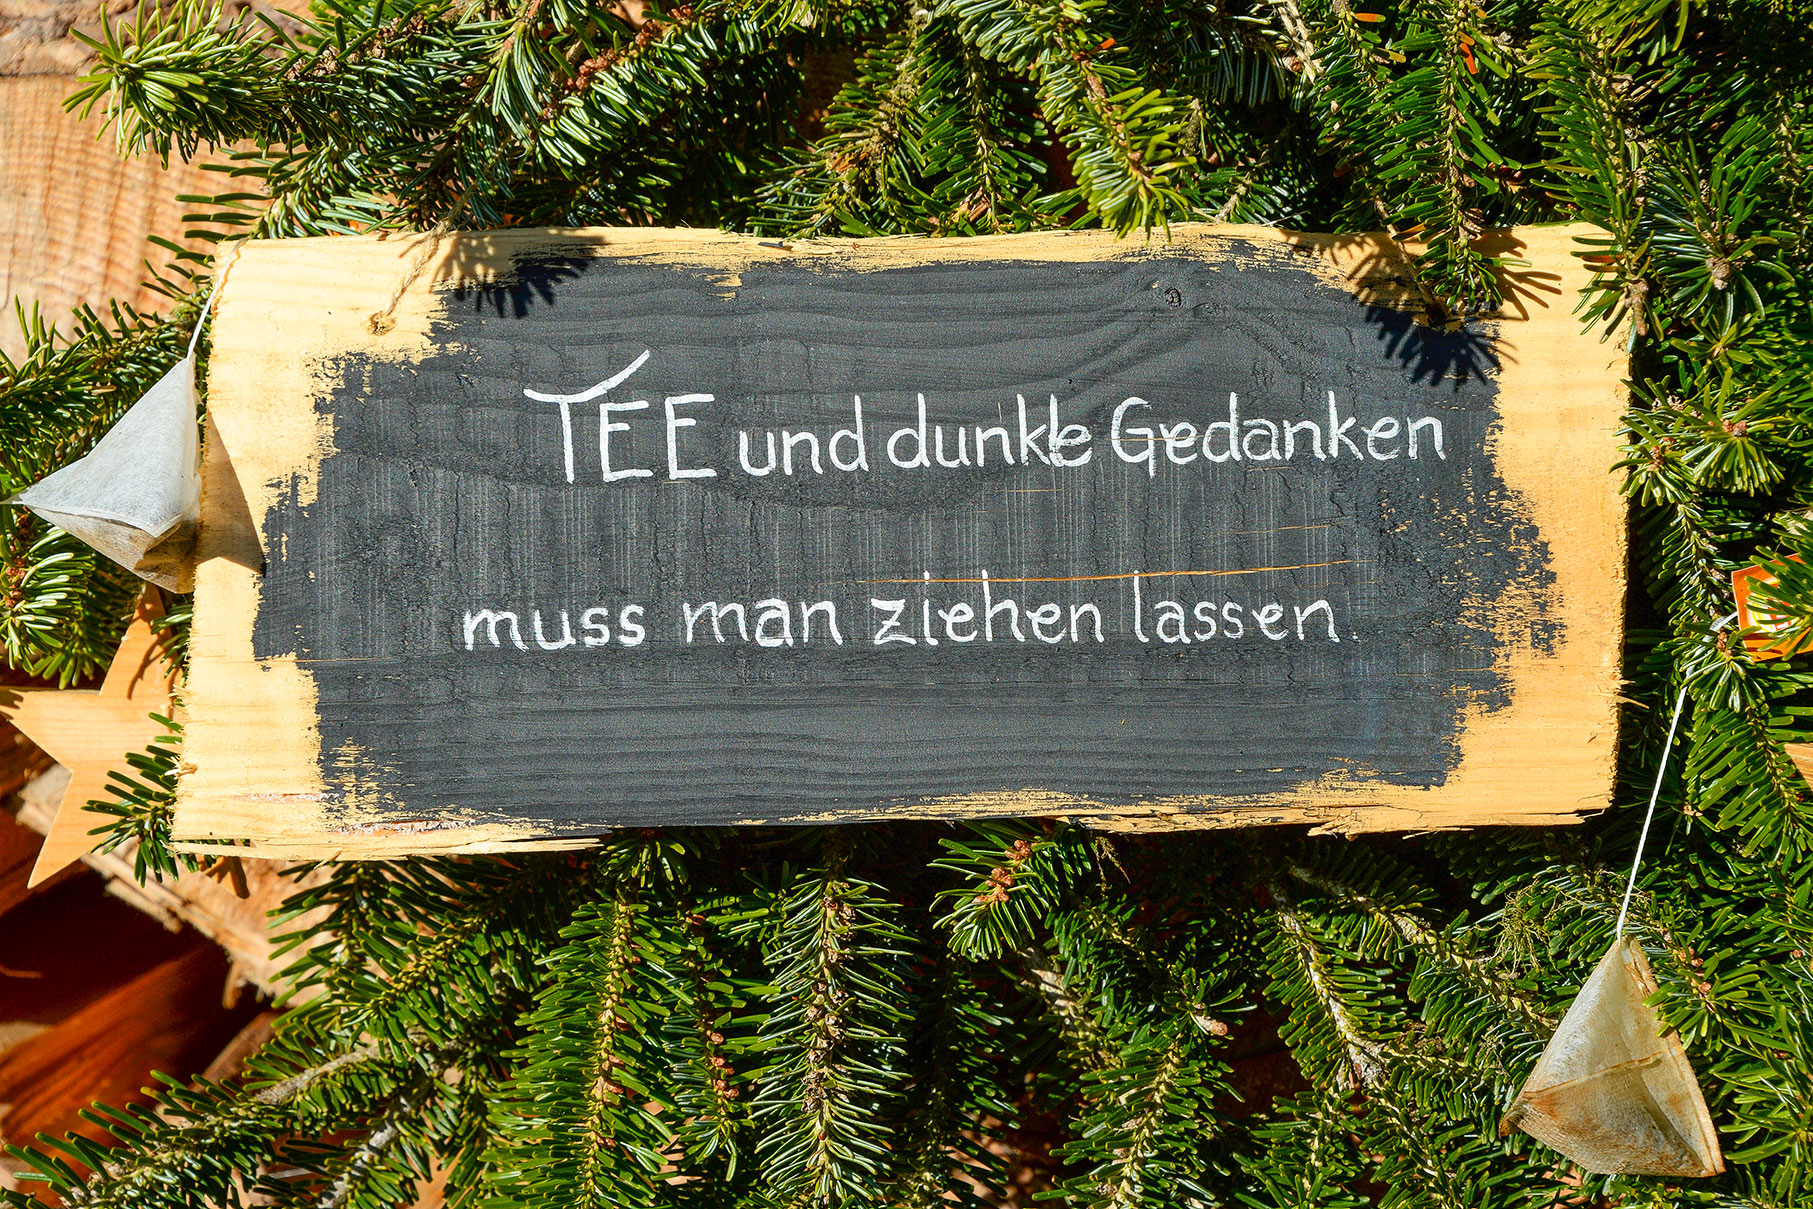 TEE und dunkle Gedanken
muss man ziehen lassen.